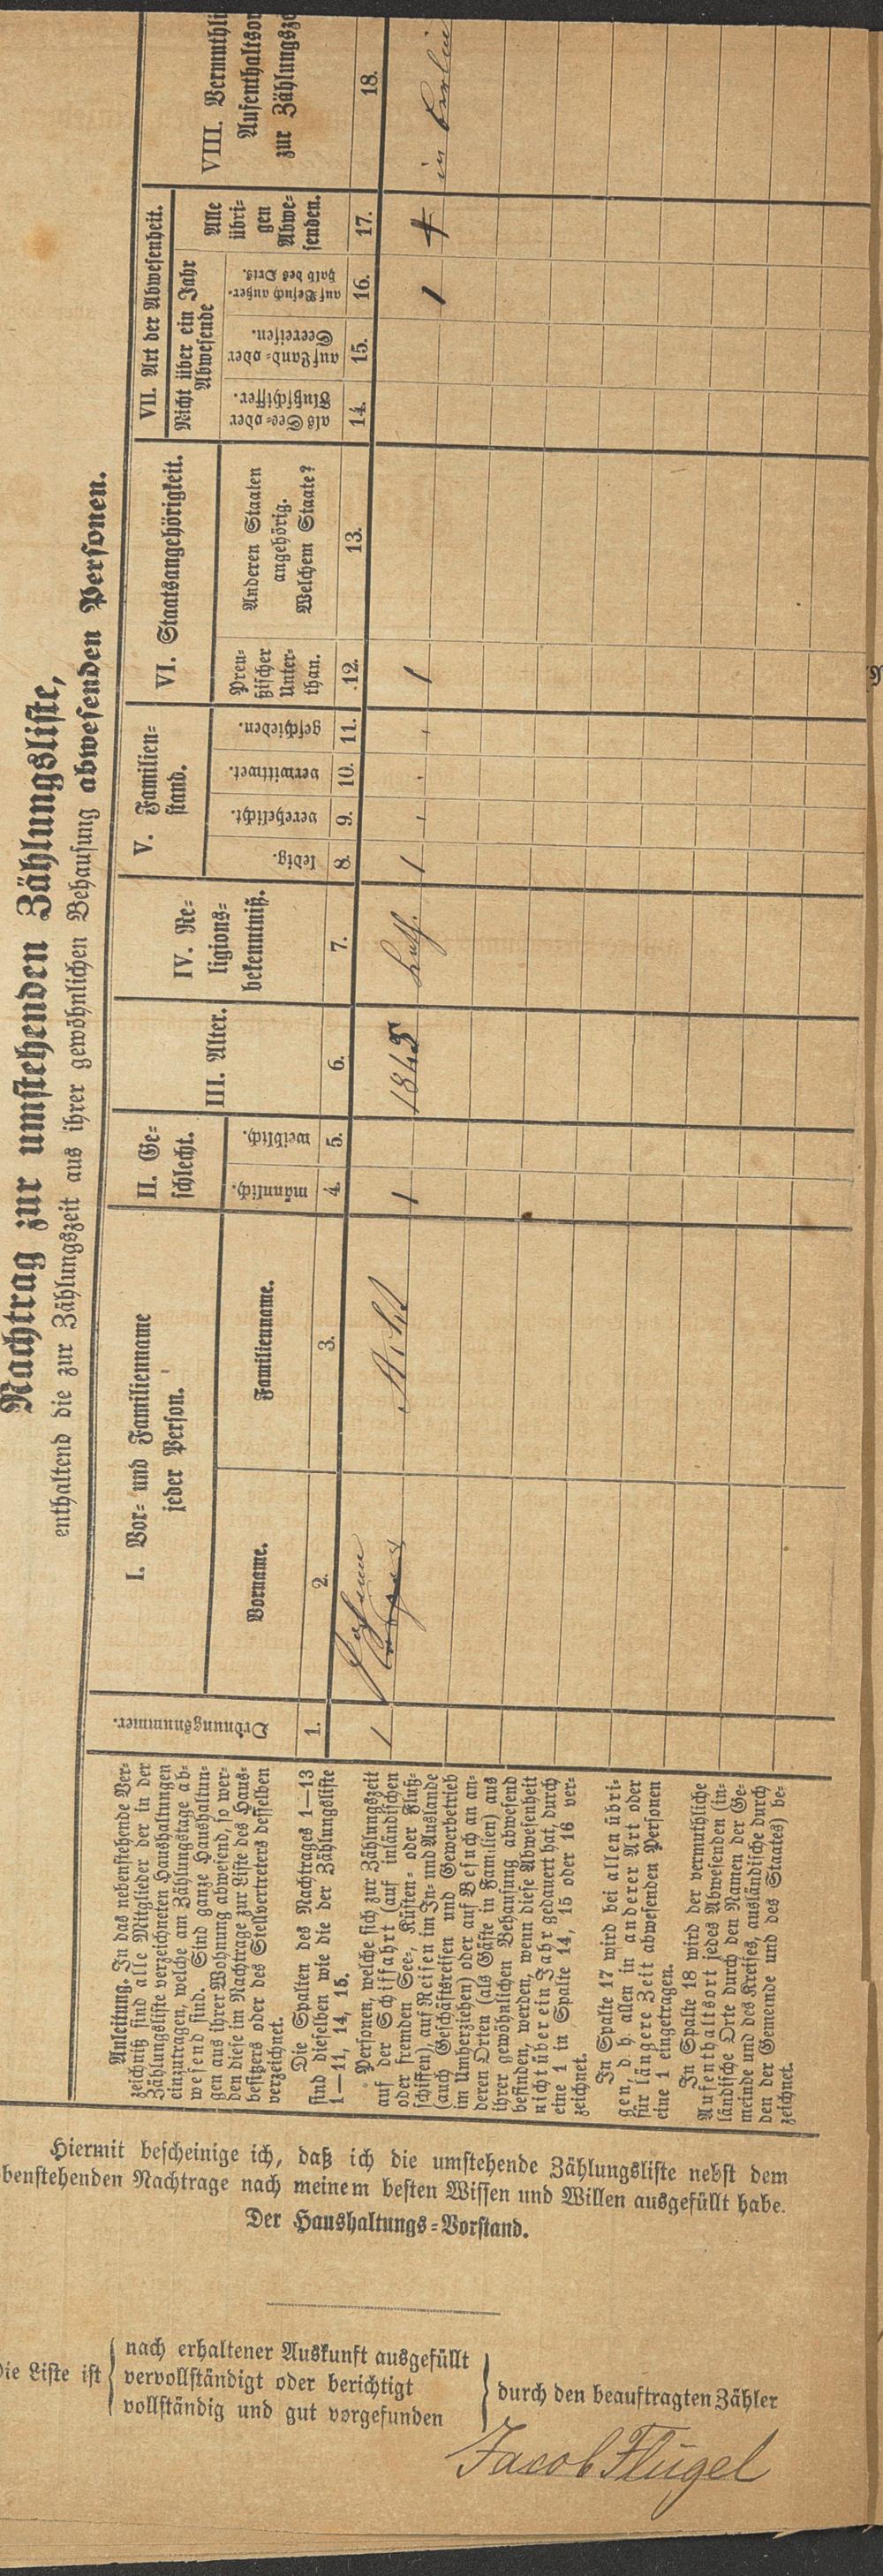 Nachtrag zur umstehenden Zählungsliste,
enthaltend die zur Zählungszeit aus ihrer gewöhnlichen Behausung abwesenden Personen.
Anleitung. In das nebenstehende Ver-
zeichniß sind alle Mitglieder der in der
Zählungsliste verzeichneten Haushaltungen
einzutragen, welche am Zählungstage ab-
wesend sind. Sind ganze Haushaltun-
gen aus ihrer Wohnung abwesend, so wer-
den diese im Nachtrage zur Liste des Haus-
besitzers oder des Stellvertreters desselben
verzeichnet.
Die Spalten des Nachtrages 1—13
sind dieselben wie die der Zählungsliste
1—11, 14, 15.
Personen, welche sich zur Zählungszeit
auf der Schiffahrt (auf inländischen
oder fremden See-, Küsten- oder Fluß-
schiffen), auf Reisen im In- und Auslande
(auch Geschäftsreisen und Gewerbetrieb
im Umherziehen) oder auf Besuch an an-
deren Orten (als Gäste in Familien) aus
ihrer gewöhnlichen Behausung abwesend
befinden, werden, wenn diese Abwesenheit
nicht über ein Jahr gedauert hat, durch
eine 1 in Spalte 14, 15 oder 16 ver-
zeichnet.
In Spalte 17 wird bei allen übri-
gen, d. h. allen in anderer Art oder
für längere Zeit abwesenden Personen
eine 1 eingetragen.
In Spalte 18 wird der vermuthliche
Aufenthaltsort jedes Abwesenden (in-
ländische Orte durch den Namen der Ge-
meinde und des Kreises, ausländische durch
den der Gemeinde und des Staates) be-
zeichnet.
Ordnungsnummer.
I. Vor- und Familienname
jeder Person.
Vorname.
Familienname.
II. Ge-
schlecht.
männlich.
weiblich.
III. Alter.
IV. Re-
ligions-
bekenntniß.
V. Familien-
stand.
ledig.
verehelicht.
verwittwet.
geschieden.
VI. Staatsangehörigkeit.
Preu-
ßischer
Unter-
than.
Anderen Staaten
angehörig.
Welchem Staate?
VII. Art der Abwesenheit.
Nicht über ein Jahr
Abwesende
als See- oder
Flußschiffer.
auf Land- oder
Seereisen.
auf Besuch außer-
halb des Orts.
Alle
übri-
gen
Abwe-
senden.
VIII. Vermuthli
Aufenthaltsor
zur Zählungsze
1. 2. 3. 4. 5. 6. 7. 8. 9. 10. 11. 12. 13. 14. 15. 16. 17. 18.
1 1 1845 Luth. 1 - - - 1 1 in Berlin
Hiermit bescheinige ich, daß ich die umstehende Zählungsliste nebst dem
benstehenden Nachtrage nach meinem besten Wissen und Willen ausgefüllt habe.
Der Haushaltungs-Vorstand.
Die Liste ist
nach erhaltener Auskunft ausgefüllt
vervollständigt oder berichtigt
vollständig und gut vorgefunden
durch den beauftragten Zähler
Jacob Flügel